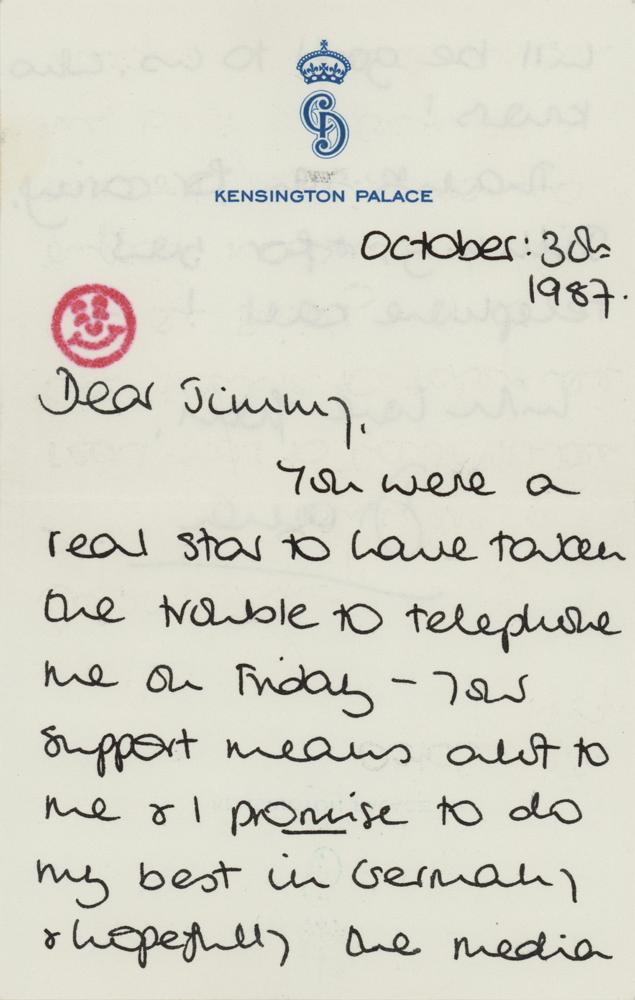 CD
KENSINGTON PALACE
October: 30th
1987.
Dear Jimmy,
You were a
real star to have taken
the trouble to telephone
me on Friday - Your
support means alot to
me & I promise to do
my best in Germany
& hopefully the media